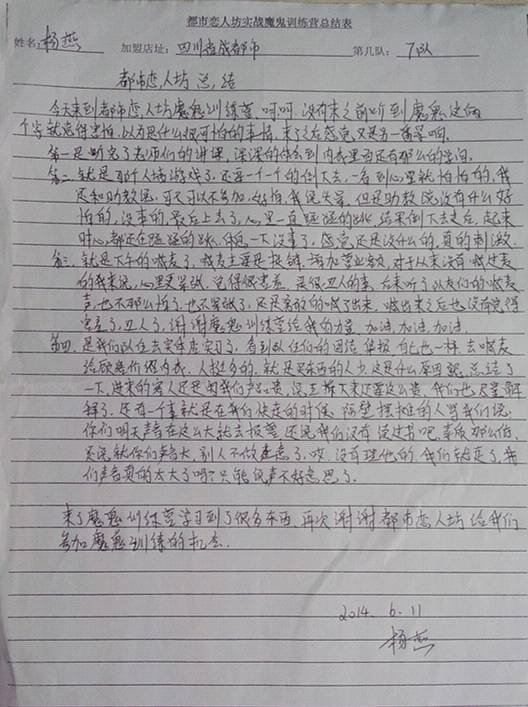 都市恋人坊实战魔鬼训练营总结表
姓名:杨燕 加盟店址:四川省成都市 第几队:7队
都市恋人坊总结
今天来到都市恋人坊魔鬼训练营,呵呵,没有来之前听到魔鬼这俩
个字就觉得害怕,以为是什么很可怕的事情,来了之后感觉又是另一番景响.
第一是听完了老师们的讲课,深深的体会到内衣里面还有那么的学问.
第二,就是那个人墙游戏了,还要一个一个的倒下去,一看到心里就怕怕的,我
是和助教说,可不可以不参加,好怕,我说头晕,但是助教说没有什么好
怕的,没事的,最后上去了,心里一直砰砰的跳,结果倒下去之后,起来
时心都还在砰砰的跳,但是一下没事了,感觉还是没什么的,真的刺激.
第三,就是下午的喊麦了,喊麦主要是促销,增加营业额,对于从来没有喊过麦
的我来说,心里更紧张,觉得很害羞,是很丑人的事,后来听了队友们的喊麦
声,也不那么怕了,也不紧张了,还是高放的喊了出来,喊出来之后也没有觉得
害羞了,丑人了,谢谢魔鬼训练营给我的力量,加油,加油,加油.
第四,是我们队在去实体店实习了,看到队在们的团结,像我自己也一样去喊麦
给顾客介绍内衣,人挺多的,就是买东西的人少,这是什么原因呢,总结了
一下,进来的客人还是闲我们产品贵,说怎拆下来还要这么贵,我们也尽量解
释了.还有一个事就是在我们快走的时候,隔壁摆摊的人骂我们说,
你们明天声音在这么大就去报警,还说我们没有读过书吧,素质那么低,
还说,就你们声音大,别人不做生意了,哎,没有理他的,我们就走了,我
们声音真的太大了吗?只能低声不好意思了.
来了魔鬼训练营学习到了很多东西,再次谢谢都市恋人坊给我们
参加魔鬼训练的机会.
2014. 6. 11
杨燕